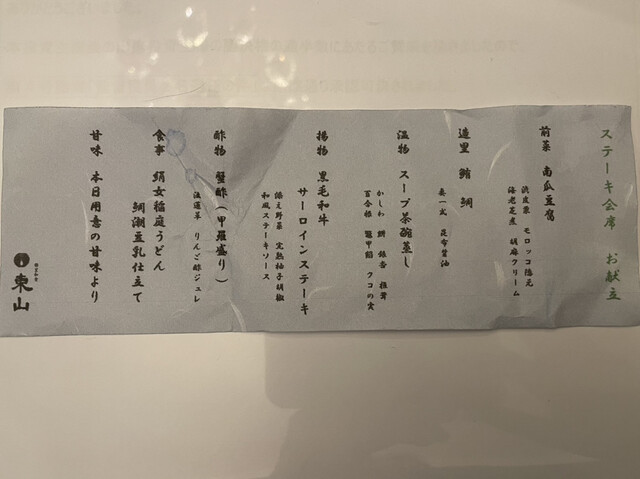 ステーキ会席 お献立
前菜 南瓜豆腐
渋皮栗 モロッコ隠元
海老芝煮 胡麻クリーム
造里 鮪 鯛
妻一式 昆布醤油
温物 スープ茶碗蒸し
かしわ 餅 銀杏 椎茸
百合根 鼈甲餡 クコの実
揚物 黒毛和牛
サーロインステーキ
添え野菜 完熟柚子胡椒
和風ステーキソース
酢物 蟹酢（甲羅盛り）
法蓮草 りんご酢ジュレ
食事 絹女稲庭うどん
鯛潮豆乳仕立て
甘味 本日用意の甘味より
東山